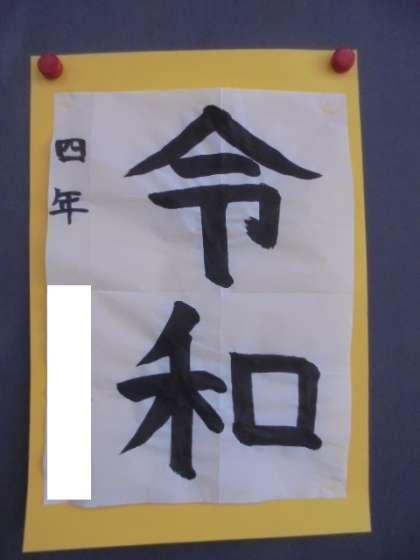 令和
四年